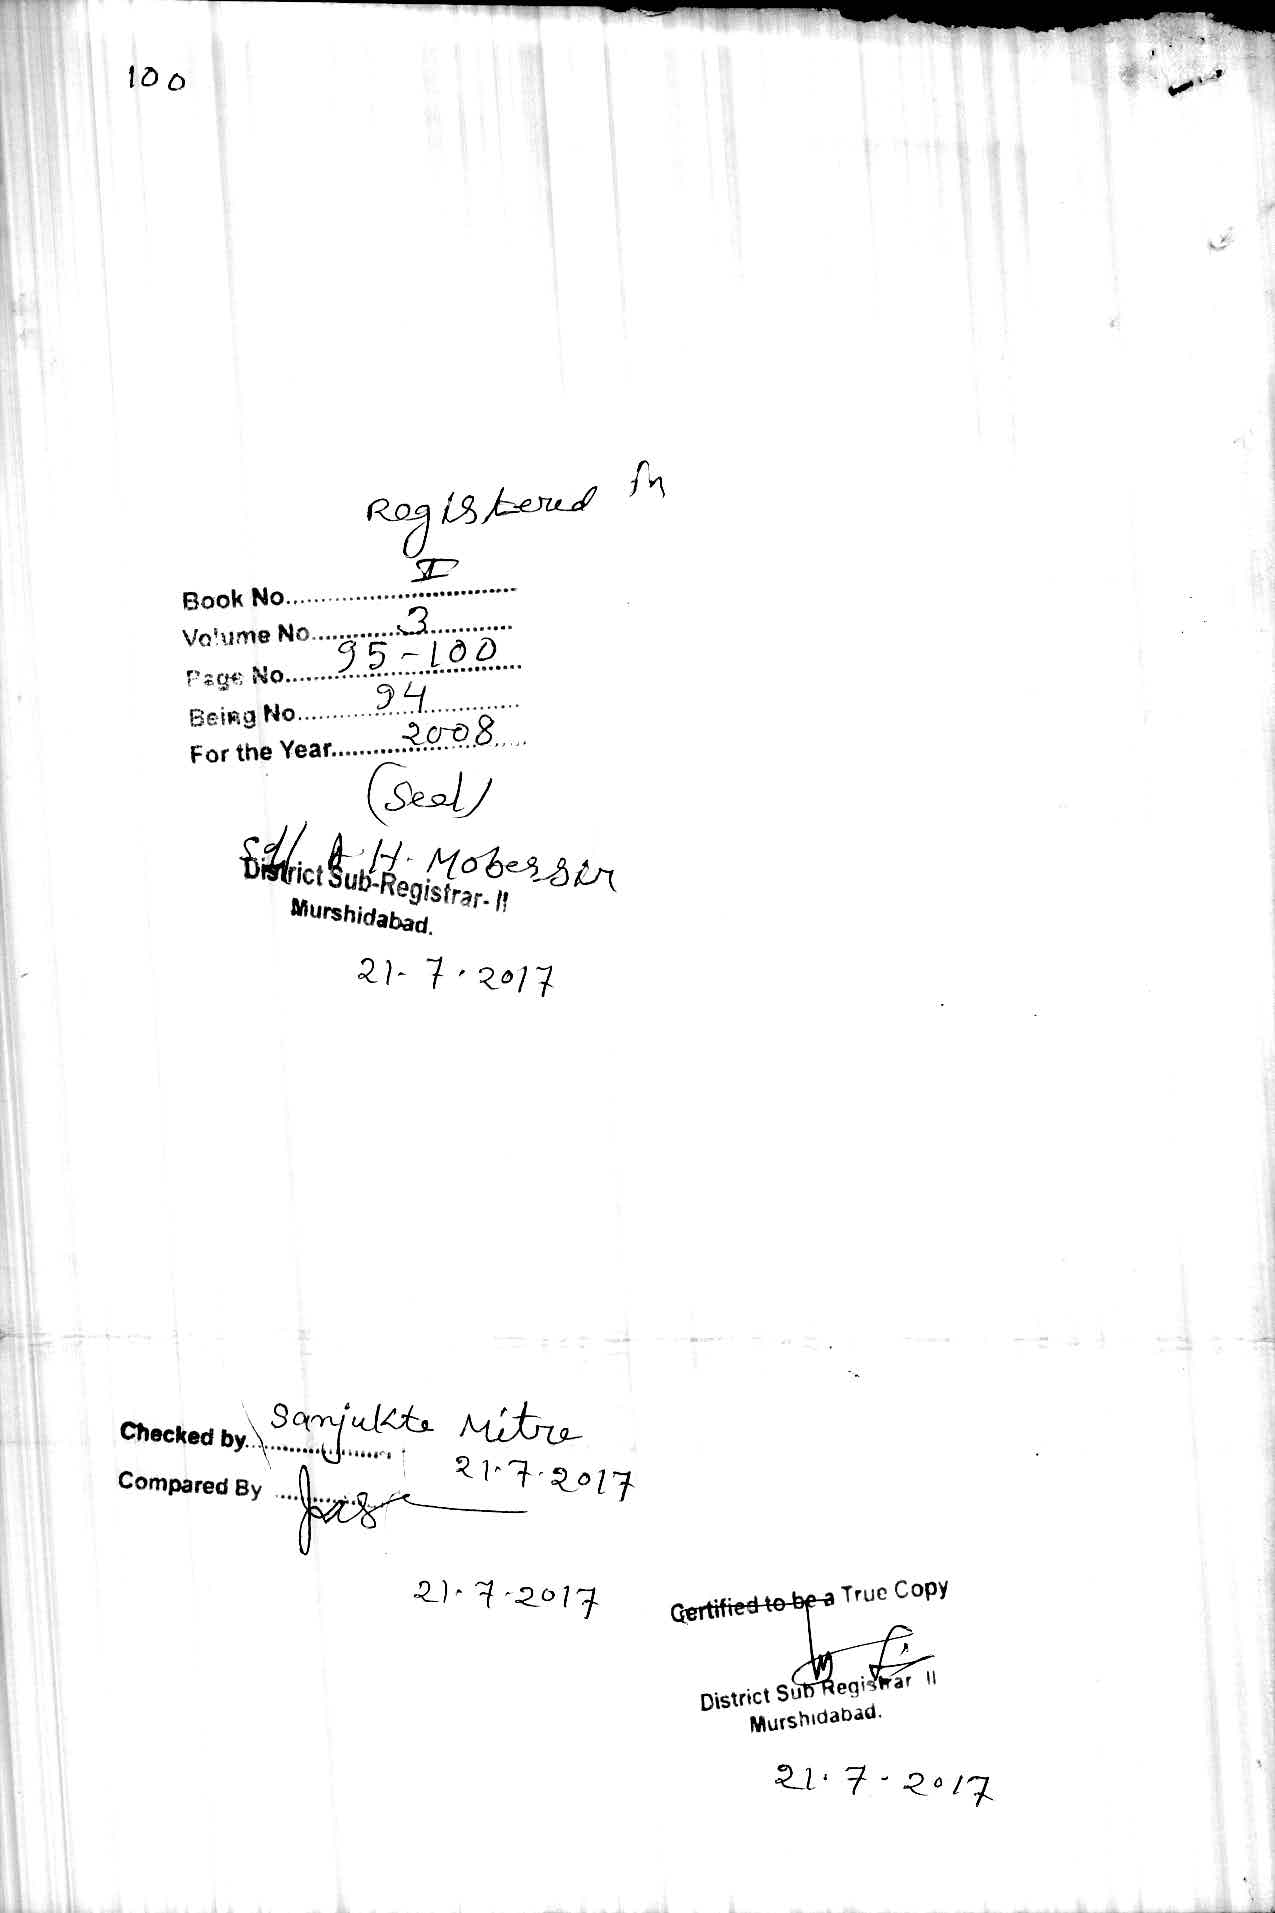 100
Registered in
Book No. I
Volume No. 3
Page No. 95-100
Being No. 94
For the Year. 2008
(Seal)
Sd/ A. H. Mobessir
District Sub-Registrar-II
Murshidabad.
21-7.2017
Checked by. Sanjukta Mitra
21.7.2017
Compared By
21.7.2017
Certified to be a True Copy
District Sub Registrar II
Murshidabad.
21.7-2017